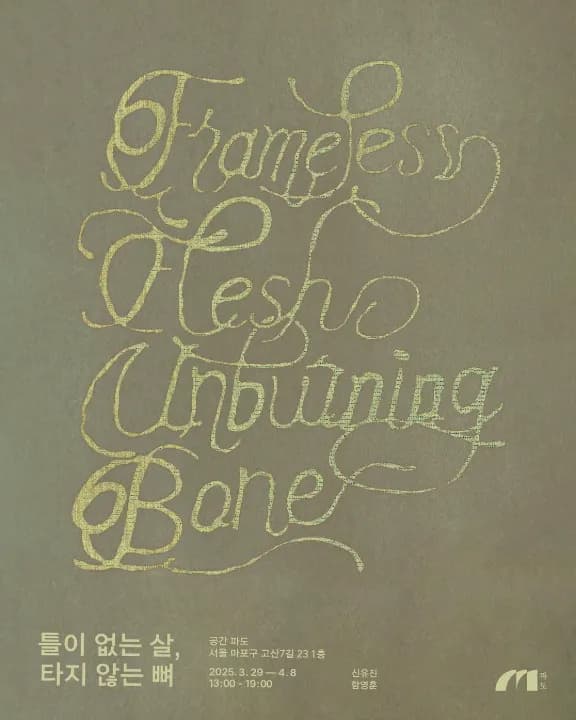 Frameless
Flesh
Unburning
Bone
틀이 없는 살,
타지 않는 뼈
공간 파도
서울 마포구 고산7길 23 1층
2025. 3. 29 — 4. 8
13:00 - 19:00
신유진
함영훈
파도